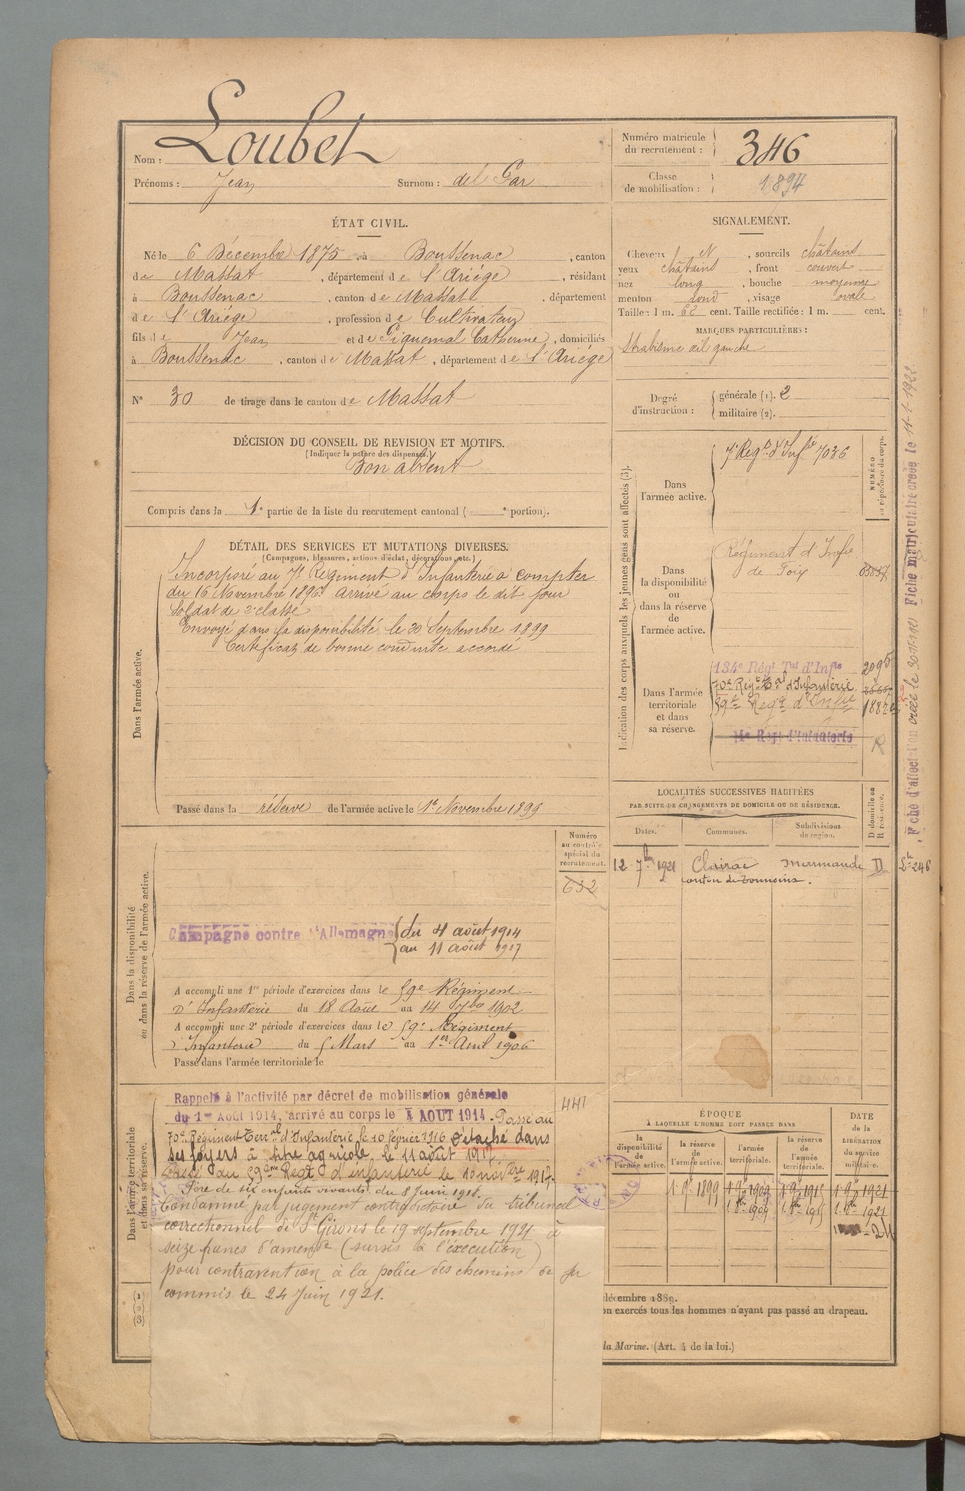 Nom : Loubet
Prénoms : Jean Surnom : del Gar
Numéro matricule du recrutement : 346
Classe de mobilisation : 1894
ÉTAT CIVIL.
Né le 6 Décembre 1875, à Boussenac, canton
de Massat, département de l'Ariége, résidant
à Boussenac, canton de Massat, département
de l'Ariége, profession de Cultivateur
fils de Jean et de Piquemal Catherine, domiciliés
à Boussenac, canton de Massat, département de l'Ariége
N° 30 de tirage dans le canton de Massat
SIGNALEMENT.
Cheveux N, sourcils châtains
yeux châtains, front couvert
nez long, bouche moyenne
menton rond, visage ovale
Taille : 1 m. 62 cent. Taille rectifiée : 1 m. cent.
MARQUES PARTICULIÈRES :
Strabisme œil gauche
Degré d'instruction : générale (1). 2
militaire (2).
DÉCISION DU CONSEIL DE REVISION ET MOTIFS.
(Indiquer la nature des dispenses.)
Bon absent
Compris dans la 1e partie de la liste du recrutement cantonal ( e portion).
DÉTAIL DES SERVICES ET MUTATIONS DIVERSES.
(Campagnes, blessures, actions d'éclat, décorations, etc.)
Dans l'armée active.
Incorporé au 7e Régiment d'Infanterie à compter
du 16 Novembre 1896 arrivé au corps le dit jour
soldat de 2e classe
Envoyé dans la disponibilité le 20 Septembre 1899
Certificat de bonne conduite accordé
Passé dans la réserve de l'armée active le 1er Novembre 1899
Indication des corps auxquels les jeunes gens sont affectés (3).
NUMÉRO au répertoire du corps.
Dans l'armée active.
7e Regt d'Infie 7036
Dans la disponibilité ou dans la réserve de l'armée active.
Régiment d'Infie
de Foix
Dans l'armée territoriale et dans sa réserve.
134e Régt Tal d'Infie 2095
70e Régt Tal d'Infanterie
59e Regt d'Infie
14e Regt d'Infanterie R
LOCALITÉS SUCCESSIVES HABITÉES
PAR SUITE DE CHANGEMENTS DE DOMICILE OU DE RÉSIDENCE.
Dates. Communes. Subdivisions de région. D domicile ou R résidence.
12 7bre 1921 Clairac Marmande D
canton de Tonneins.
Fiche d'affectation créée le 20-11-1921 Fiche matriculaire créée le 11-1-1922
Dans la disponibilité ou dans la réserve de l'armée active.
Numéro au contrôle spécial du recrutement.
632
Campagne contre l'Allemagne du 4 août 1914
au 11 août 1917
A accompli une 1re période d'exercices dans le 59e Régiment
d'Infanterie du 18 Août au 14 7bre 1902
A accompli une 2e période d'exercices dans le 59e Régiment
d'Infanterie du 5 Mars au 1er Avril 1906
Passé dans l'armée territoriale le
Dans l'armée territoriale et dans sa réserve.
441
Rappelé à l'activité par décret de mobilisation générale
du 1er Août 1914, arrivé au corps le 4 AOUT 1914. Passé au
70e Régiment Terral d'Infanterie le 10 février 1916 Détaché dans
ses foyers à titre agricole le 11 août 1917
Passé au 59ème Regt d'infanterie le 10 novbre 1917.
Père de six enfants vivants, du 8 Juin 1918.
Condamné par jugement contradictoire du tribunal
correctionnel de St Girons le 19 septembre 1921 à
seize francs d'amende (sursis à l'exécution)
pour contravention à la police des chemins de fer
commis le 24 Juin 1921.
ÉPOQUE
À LAQUELLE L'HOMME DOIT PASSER DANS
la disponibilité de l'armée active. la réserve de l'armée active. l'armée territoriale. la réserve de l'armée territoriale.
DATE de la LIBÉRATION du service militaire.
1.9bre 1899 1.9bre 1909 1.9bre 1915 1.9bre 1921
décembre 1889.
on exercés tous les hommes n'ayant pas passé au drapeau.
la Marine. (Art. 4 de la loi.)